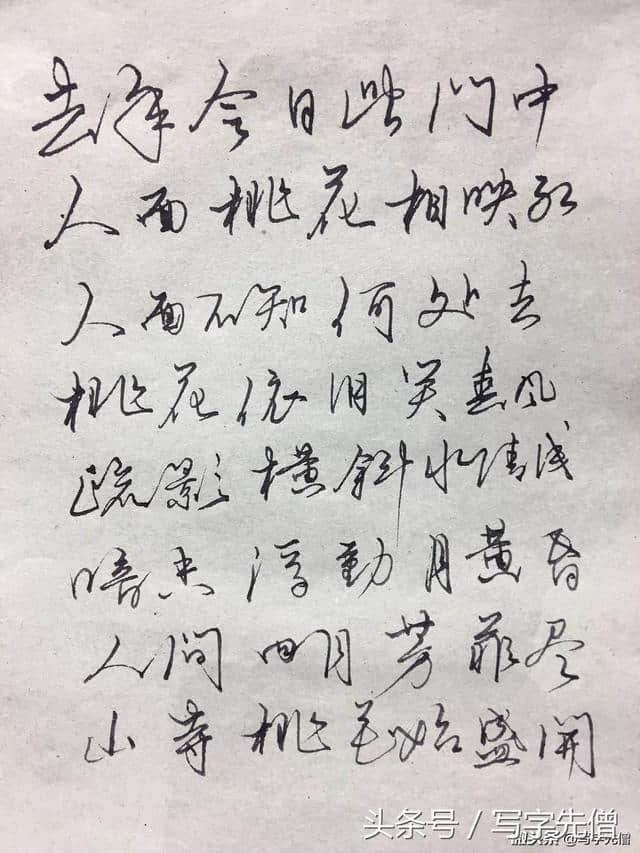 去年今日此门中
人面桃花相映红
人面不知何处去
桃花依旧笑春风
疏影横斜水清浅
暗香浮動月黄昏
人间四月芳菲尽
山寺桃花始盛開
头条号 / 写字先僧
头条 @写字先僧